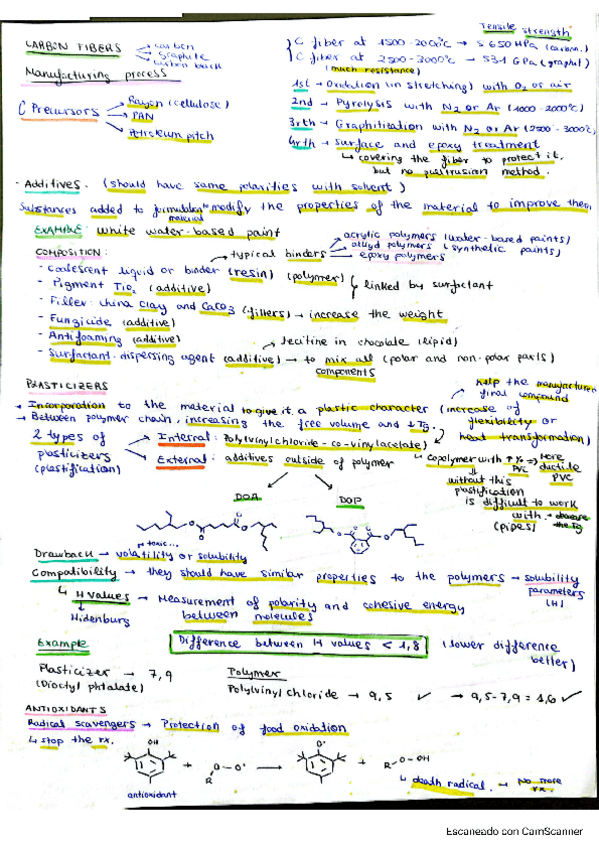 Tensile strength
CARBON FIBERS → carbon
→ graphite
→ carbon back
C fiber at 1500-2000°C → 5650 MPa (carbon.)
C fiber at 2500-3000°C → 531 GPa (graphit)
(much resistance)
Manufacturing process
C Precursors → Rayon (cellulose)
→ PAN
→ Petroleum pitch
1st → Oxidation (in stretching) with O2 or air
2nd → Pyrolysis with N2 or Ar (1000-2000°C)
3rth → Graphitization with N2 or Ar (2500-3000°C)
4rth → surface and epoxy treatment
↳ covering the fiber to protect it,
but no pultrusion method.
- Additives. (should have same polarities with solvent)
Substances added to formulation to modify the properties of the material to improve them
material
EXAMPLE: white water-based paint
COMPOSITION:
typical binders → acrylic polymers (water-based paints)
→ alkyd polymers (synthetic paints)
→ epoxy polymers
- Coalescent liquid or binder (resin) (polymer)
- Pigment TiO2 (additive)
linked by surfactant
- Filler: china clay and CaCO3 (fillers) → increase the weight
- Fungicide (additive)
- Antifoaming (additive)
lecitine in chocolate (lipid)
- Surfactant-dispersing agent (additive) → to mix all (polar and non-polar parts)
components
PLASTICIZERS
help the manufacturer
final compound
→ Incorporation to the material to give it a plastic character (increase of
flexibility or
→ Between polymer chain, increasing the free volume and ↓Tg.
heat transformation)
2 types of
plasticizers
(plastification)
Internal: Poly(vinylchloride-co-vinylacetate).
External: additives outside of polymer
↳ copolymer with ↑% PVC ⇒ more
ductile
PVC
without this
plastification
is difficult to work
with
(pipes)
DOA
DOP
toxic...
Drawback → volatility or solubility
Compatibility → they should have similar properties to the polymers → solubility
parameters
(H)
↳ H values → Measurement of polarity and cohesive energy
between molecules
Hidenburg
Example
Difference between H values < 1,8
(lower difference
better)
Plasticizer → 7,9
(Dioctyl phtalate)
Polymer
Polyvinyl chloride → 9,5 ✓ → 9,5-7,9 = 1,6 ✓
ANTIOXIDANTS
Radical scavengers → Protection of food oxidation
↳ stop the rx.
OH
O•
+ R O-O• → + R O-OH
↳ death radical. → No more
rx.
antioxidant
Escaneado con CamScanner